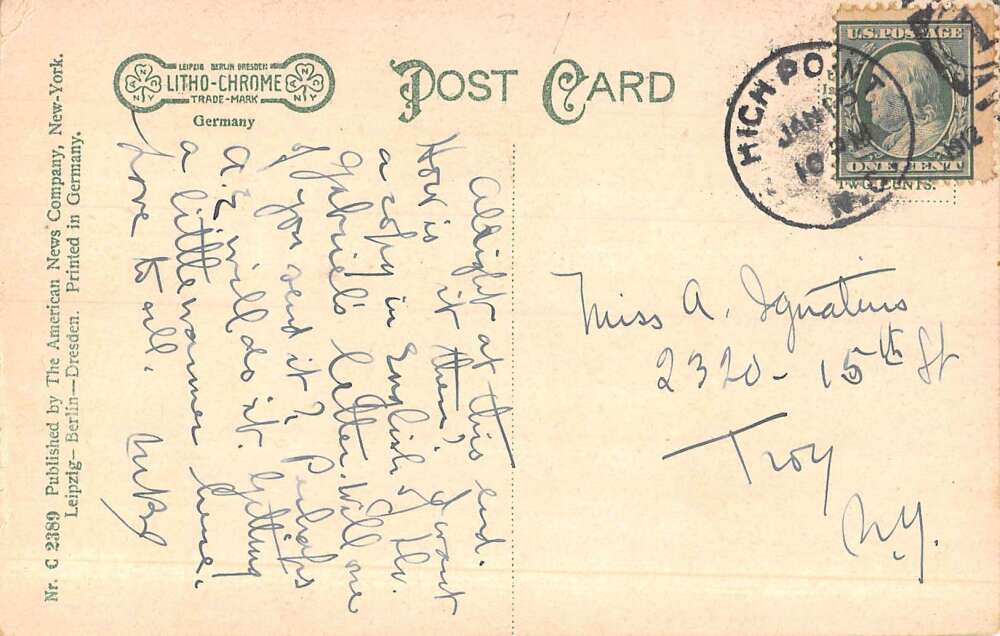 Nr. C 2389 Published by The American News Company, New-York.
Leipzig—Berlin—Dresden. Printed in Germany.
LEIPZIG BERLIN DRESDEN
LITHO-CHROME
TRADE-MARK
Germany
POST CARD
U.S. POSTAGE
ONE CENT
TWO CENTS.
HIGH POINT
JAN
10 PM
N.C.
1912
Allright at this end.
How is it there? I want
a copy in English of
Gabriel's letter. Will one
of you send it? Perhaps
A. Z. will do it. Getting
a little warmer here.
Love to all.
Miss A. Ignatius
2320 - 15th St
Troy
N.Y.